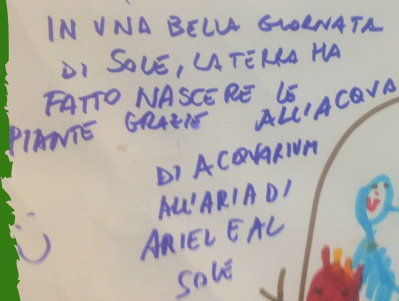 IN UNA BELLA GIORNATA
DI SOLE, LA TERRA HA
FATTO NASCERE LE
PIANTE GRAZIE ALL'ACQUA
DI ACQUARIUM
ALL'ARIA DI
ARIEL E AL
SOLE